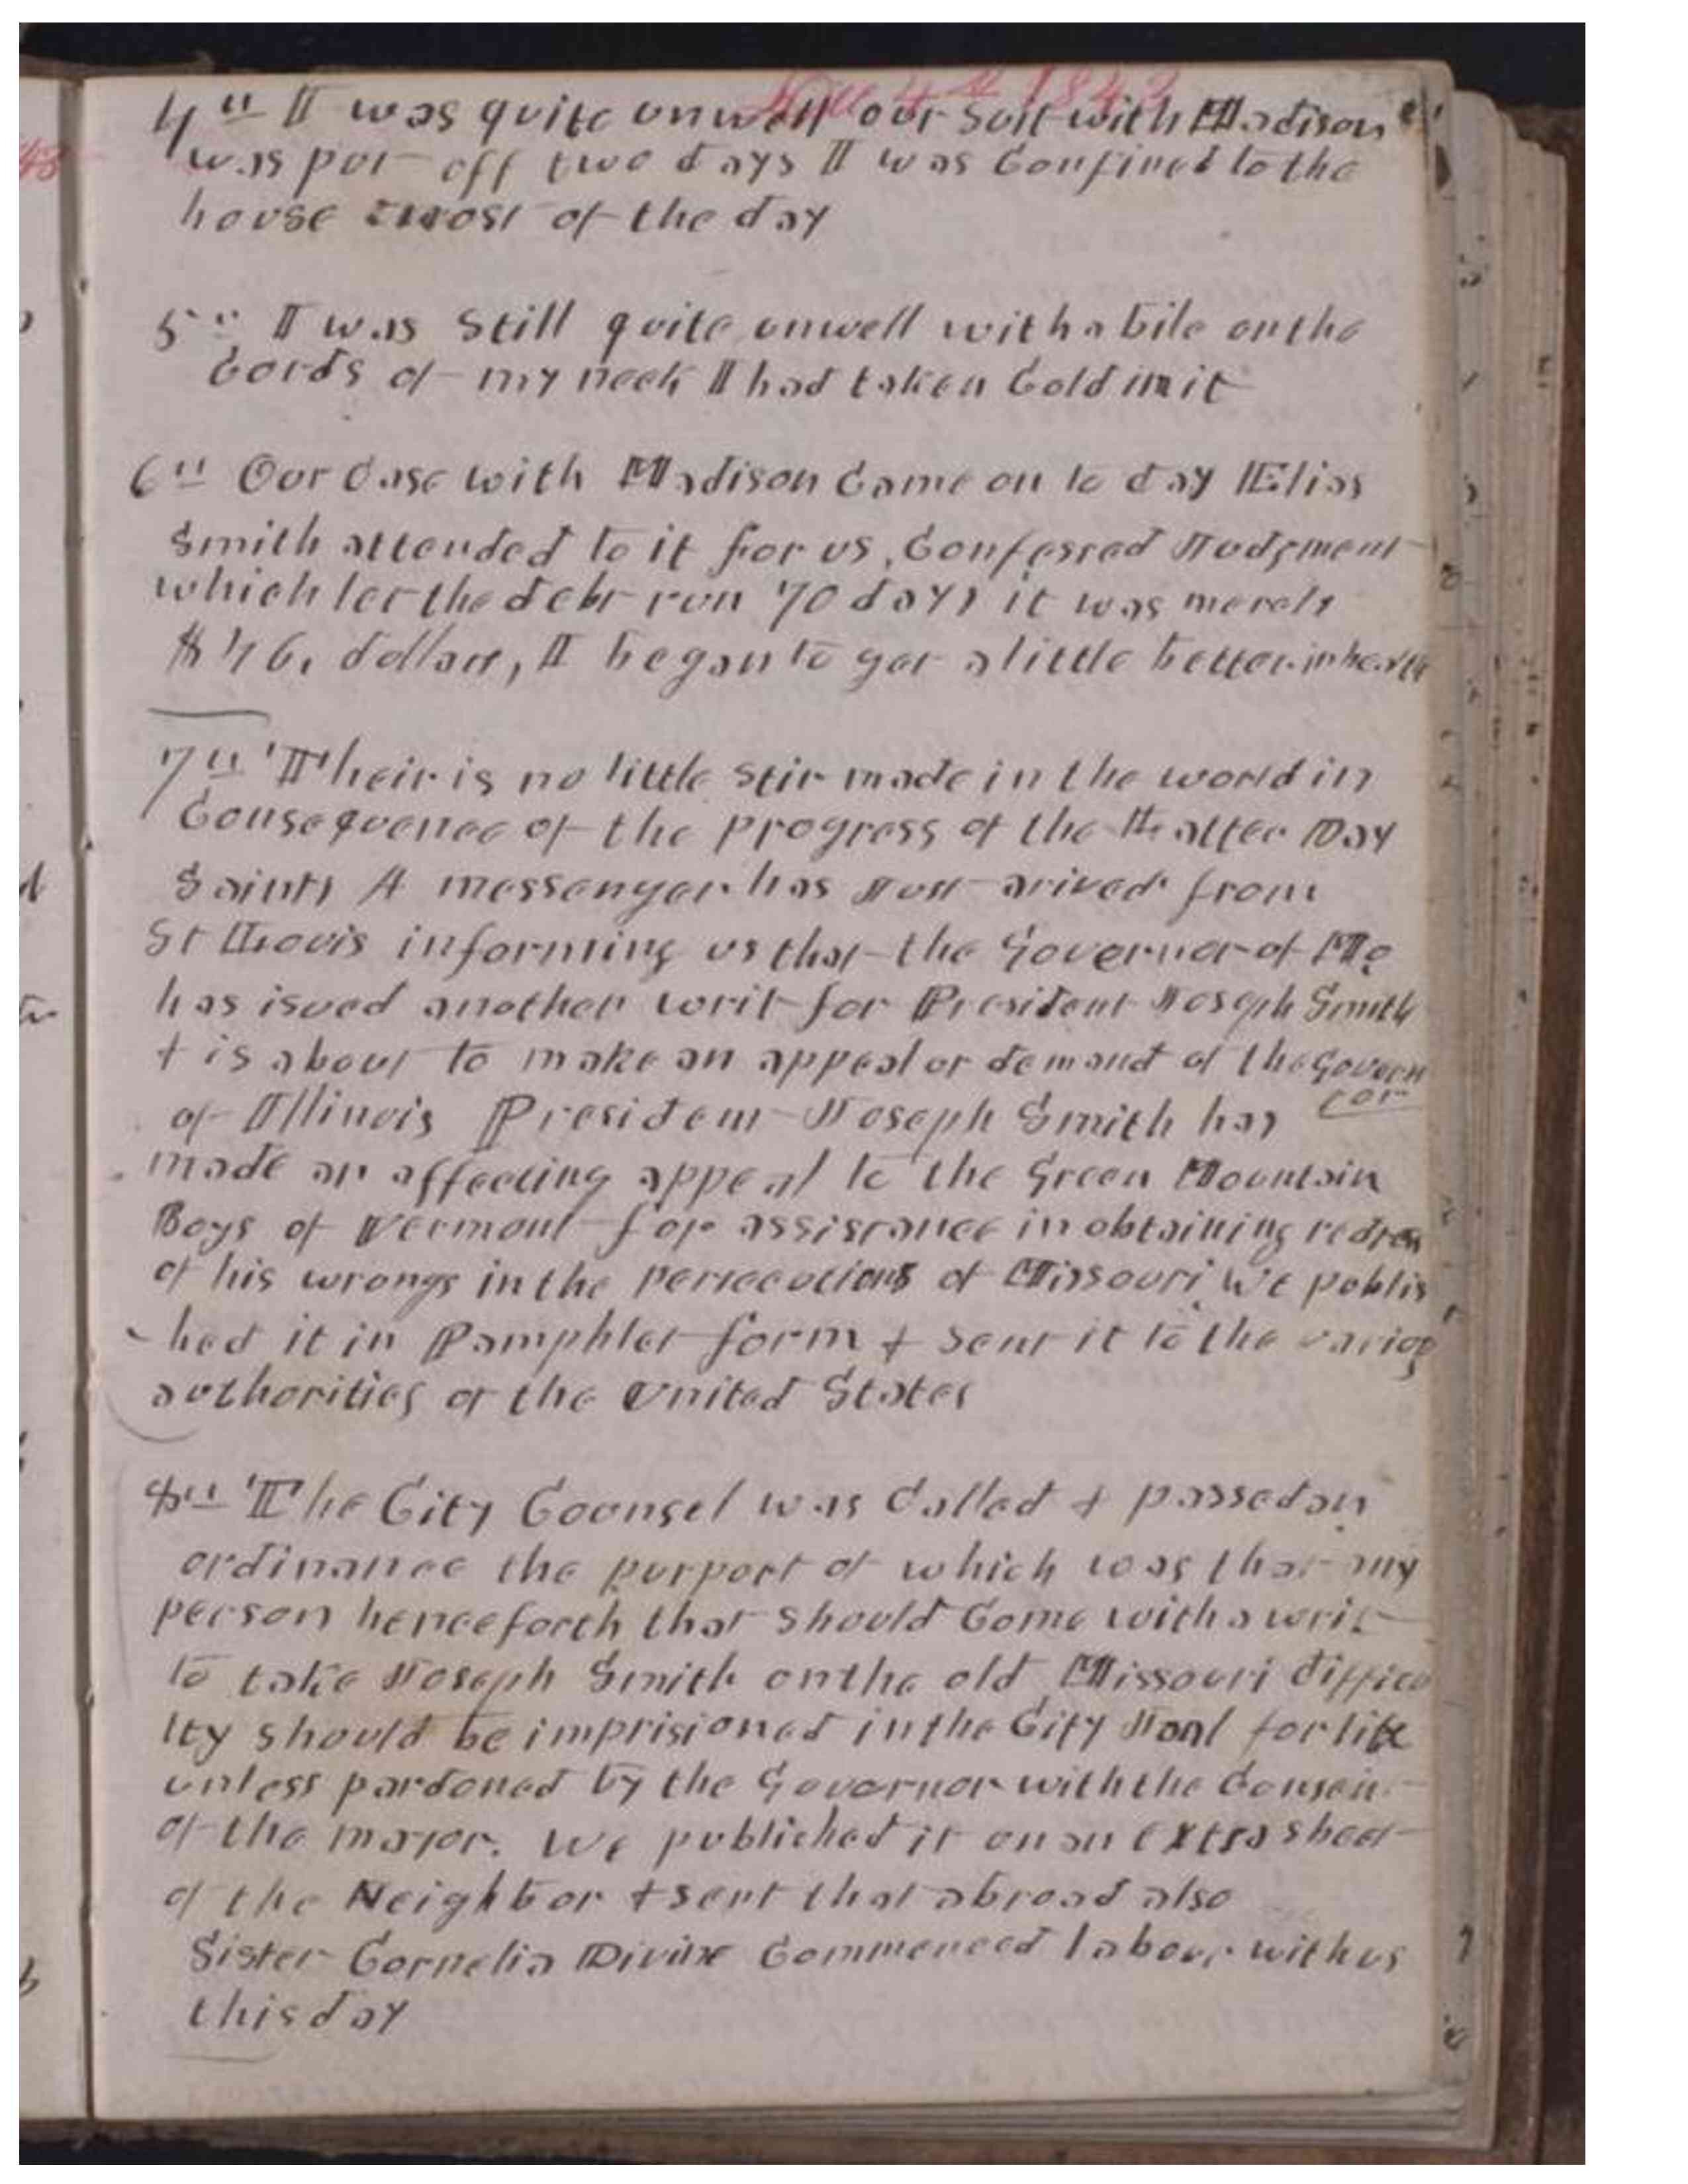 Dec 4th 1843
4th I was quite unwell our suit with Madison
was put off two days I was Confined to the
house most of the day
5th I was Still quite unwell with a bile on the
Cords of my neck I had taken Cold in it
6th Our Case with Madison Came on to day Elias
Smith attended to it for us, Confessed Judgment
which let the debt run 70 days it was merely
$46. dollars, I began to get a little better in health
7th Their is no little stir made in the world in
Consequence of the progress of the Latter Day
Saints A messenger has Just arived from
St Louis informing us that the Governor of Mo
has isued another writ for President Joseph Smith
+ is about to make an appeal or demand of the Govern
or
of Illinois President Joseph Smith has
made an affecting appeal to the Green Mountain
Boys of Vermont for assistance in obtaining redress
of his wrongs in the persecutions of Missouri We publis
hed it in Pamphlet form + sent it to the various
authorities of the United States
8th The City Counsel was Called + passed an
ordinance the purport of which was that any
person henceforth that should Come with a writ
to take Joseph Smith on the old Missouri difficu
lty should be imprisioned in the City Joal for life
unless pardoned by the Governor with the Consent
of the major. We published it on an extra sheet
of the Neighbor + sent that abroad also
Sister Cornelia Divine Commenced labour with us
this day